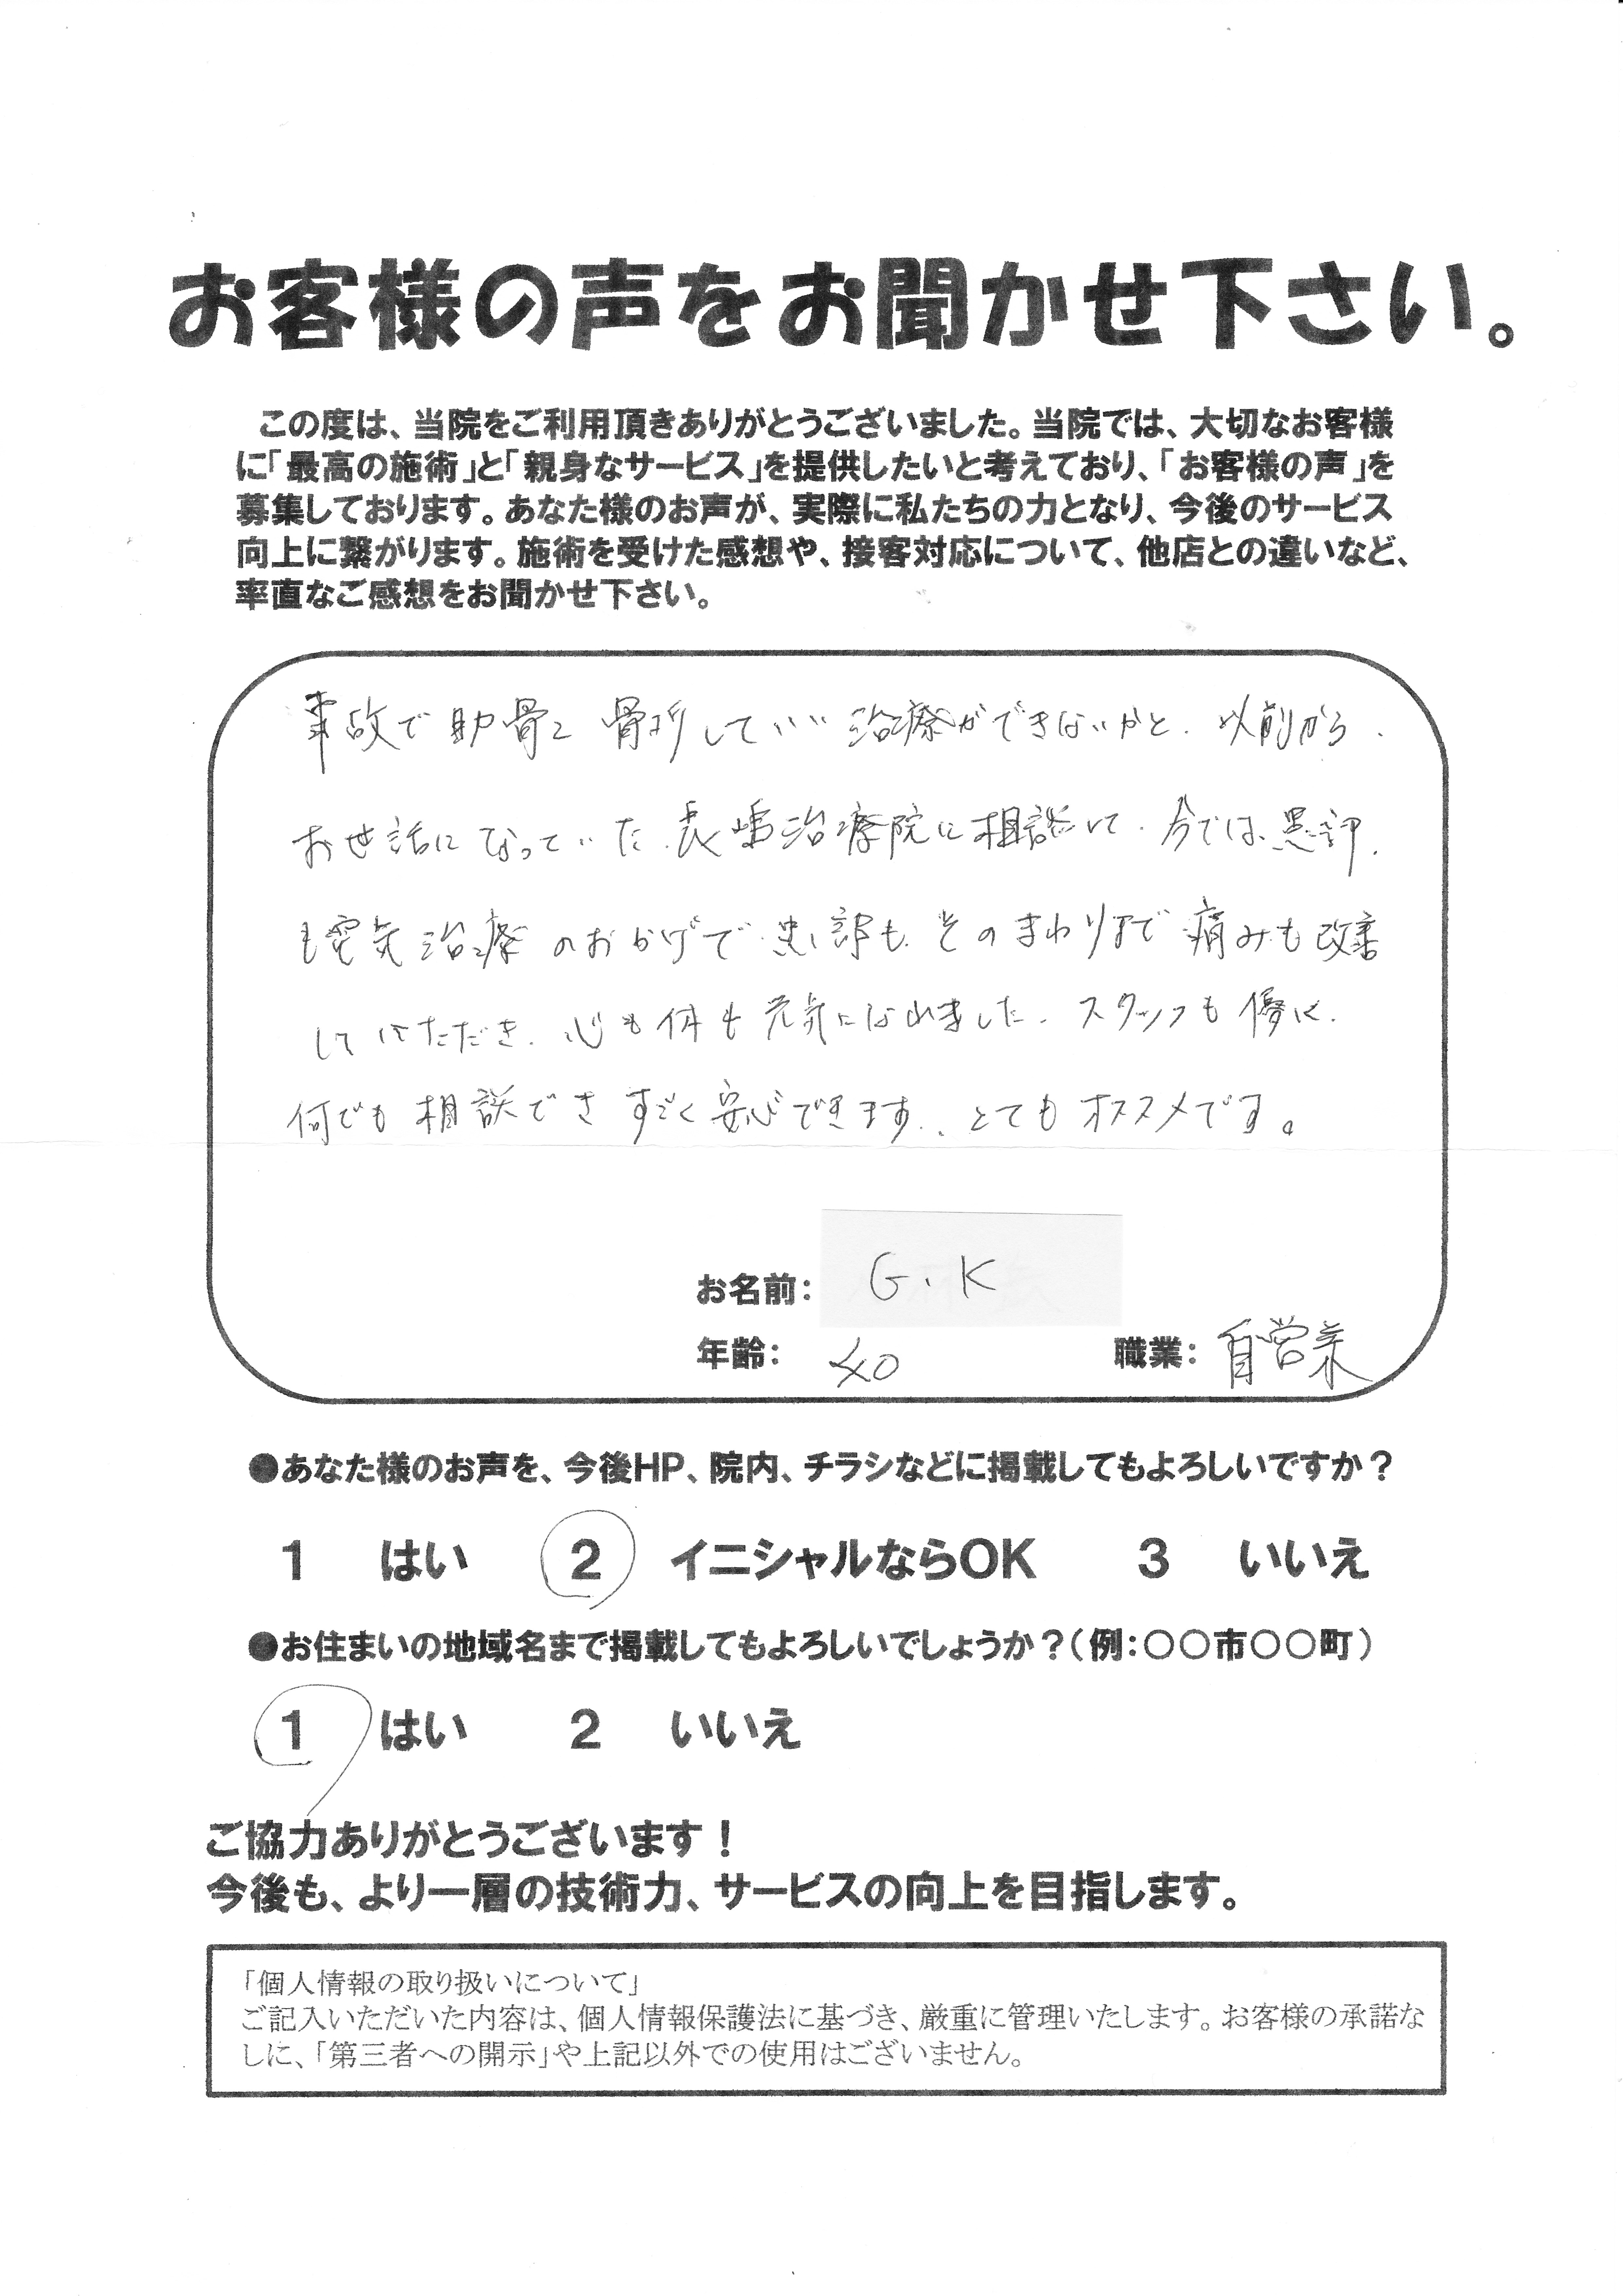 お客様の声をお聞かせ下さい。
この度は、当院をご利用頂きありがとうございました。当院では、大切なお客様
に「最高の施術」と「親身なサービス」を提供したいと考えており、「お客様の声」を
募集しております。あなた様のお声が、実際に私たちの力となり、今後のサービス
向上に繋がります。施術を受けた感想や、接客対応について、他店との違いなど、
率直なご感想をお聞かせ下さい。
事故で助骨を骨折していい治療ができないかと、以前から、
お世話になっていた、長嶋治療院に相談して、今では、患部、
も電気治療のおかげで、患部も、そのまわりまで痛みも改善
していただき、心も体も元気になりました、スタッフも優しく、
何でも相談できすごく安心できます、とてもオススメです。
お名前： G.K
年齢： 40 職業： 自営業
●あなた様のお声を、今後HP、院内、チラシなどに掲載してもよろしいですか？
1 はい 2 イニシャルならOK 3 いいえ
●お住まいの地域名まで掲載してもよろしいでしょうか？（例：○○市○○町）
1 はい 2 いいえ
ご協力ありがとうございます！
今後も、より一層の技術力、サービスの向上を目指します。
「個人情報の取り扱いについて」
ご記入いただいた内容は、個人情報保護法に基づき、厳重に管理いたします。お客様の承諾な
しに、「第三者への開示」や上記以外での使用はございません。